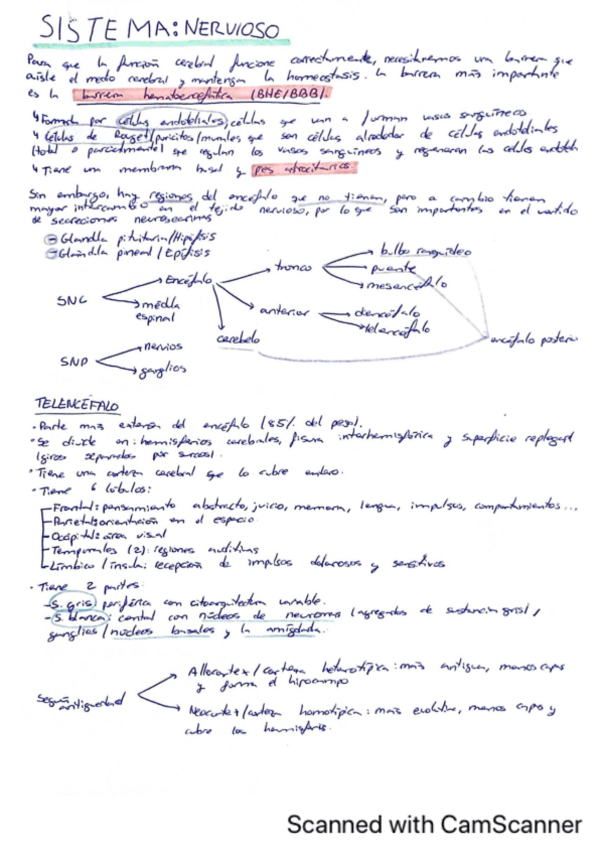 SISTEMA: NERVIOSO
Para que la función cerebral funcione correctamente, necesitaremos una barrera que
aisle el medio cerebral y mantenga la homeostasis. La barrera más importante
es la barrera hematoencefálica (BHE/BBB).
Formada por células endoteliales, células que van a formar vasos sanguíneos
Células de Rouget/pericitos/murales que son células alrededor de células endoteliales
(total o parcialmente) que regulan los vasos sanguíneos y regeneran las células endotel
Tiene una membrana basal y pies astrocitarios.
Sin embargo, hay regiones del encéfalo que no tienen, pero a cambio tienen
mayor intercambio en el tejido nervioso, por lo que son importantes en el sentido
de secreciones neuroendocrinas
Glándula pituitaria/Hipófisis
Glándula pineal/Epífisis
SNC
Encéfalo
médula
espinal
tronco
bulbo raquídeo
puente
mesencéfalo
anterior
diencéfalo
telencéfalo
cerebelo
encéfalo posterior
SNP
nervios
ganglios
TELENCÉFALO
· Parte más extensa del encéfalo (85% del peso).
· Se divide en: hemisferios cerebrales, fisura interhemisférica y superficie replegada
(giros separados por surcos).
· Tiene una corteza cerebral que lo cubre entero.
· Tiene 6 lóbulos:
Frontal: pensamiento abstracto, juicio, memoria, lengua, impulsos, comportamientos...
Parietal: orientación en el espacio
Occipital: área visual
Temporales (2): regiones auditivas
Límbico/ínsula: recepción de impulsos dolorosos y sensitivos
· Tiene 2 partes:
S. gris) periférica con citoarquitectura variable.
S. blanca: central con núcleos de neuronas (agregados de sustancia gris) /
ganglios/núcleos basales y la amígdala.
Según antigüedad
Allocortex/corteza heterotípica: más antigua, menos capas
y forma el hipocampo
Neocortex/corteza homotípica: más evolutiva, menos capas y
cubre los hemisferios.
Scanned with CamScanner